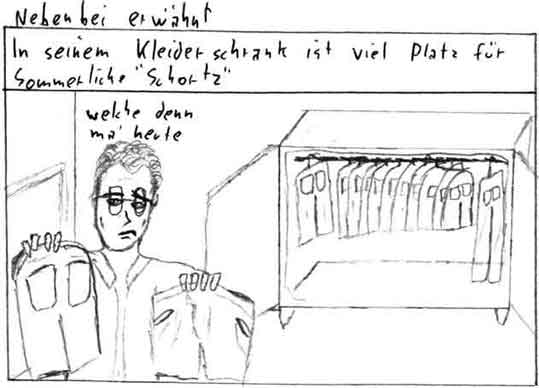 Nebenbei erwähnt
In seinem Kleiderschrank ist viel Platz für
Sommerliche "Schortz"
welche denn
ma' heute